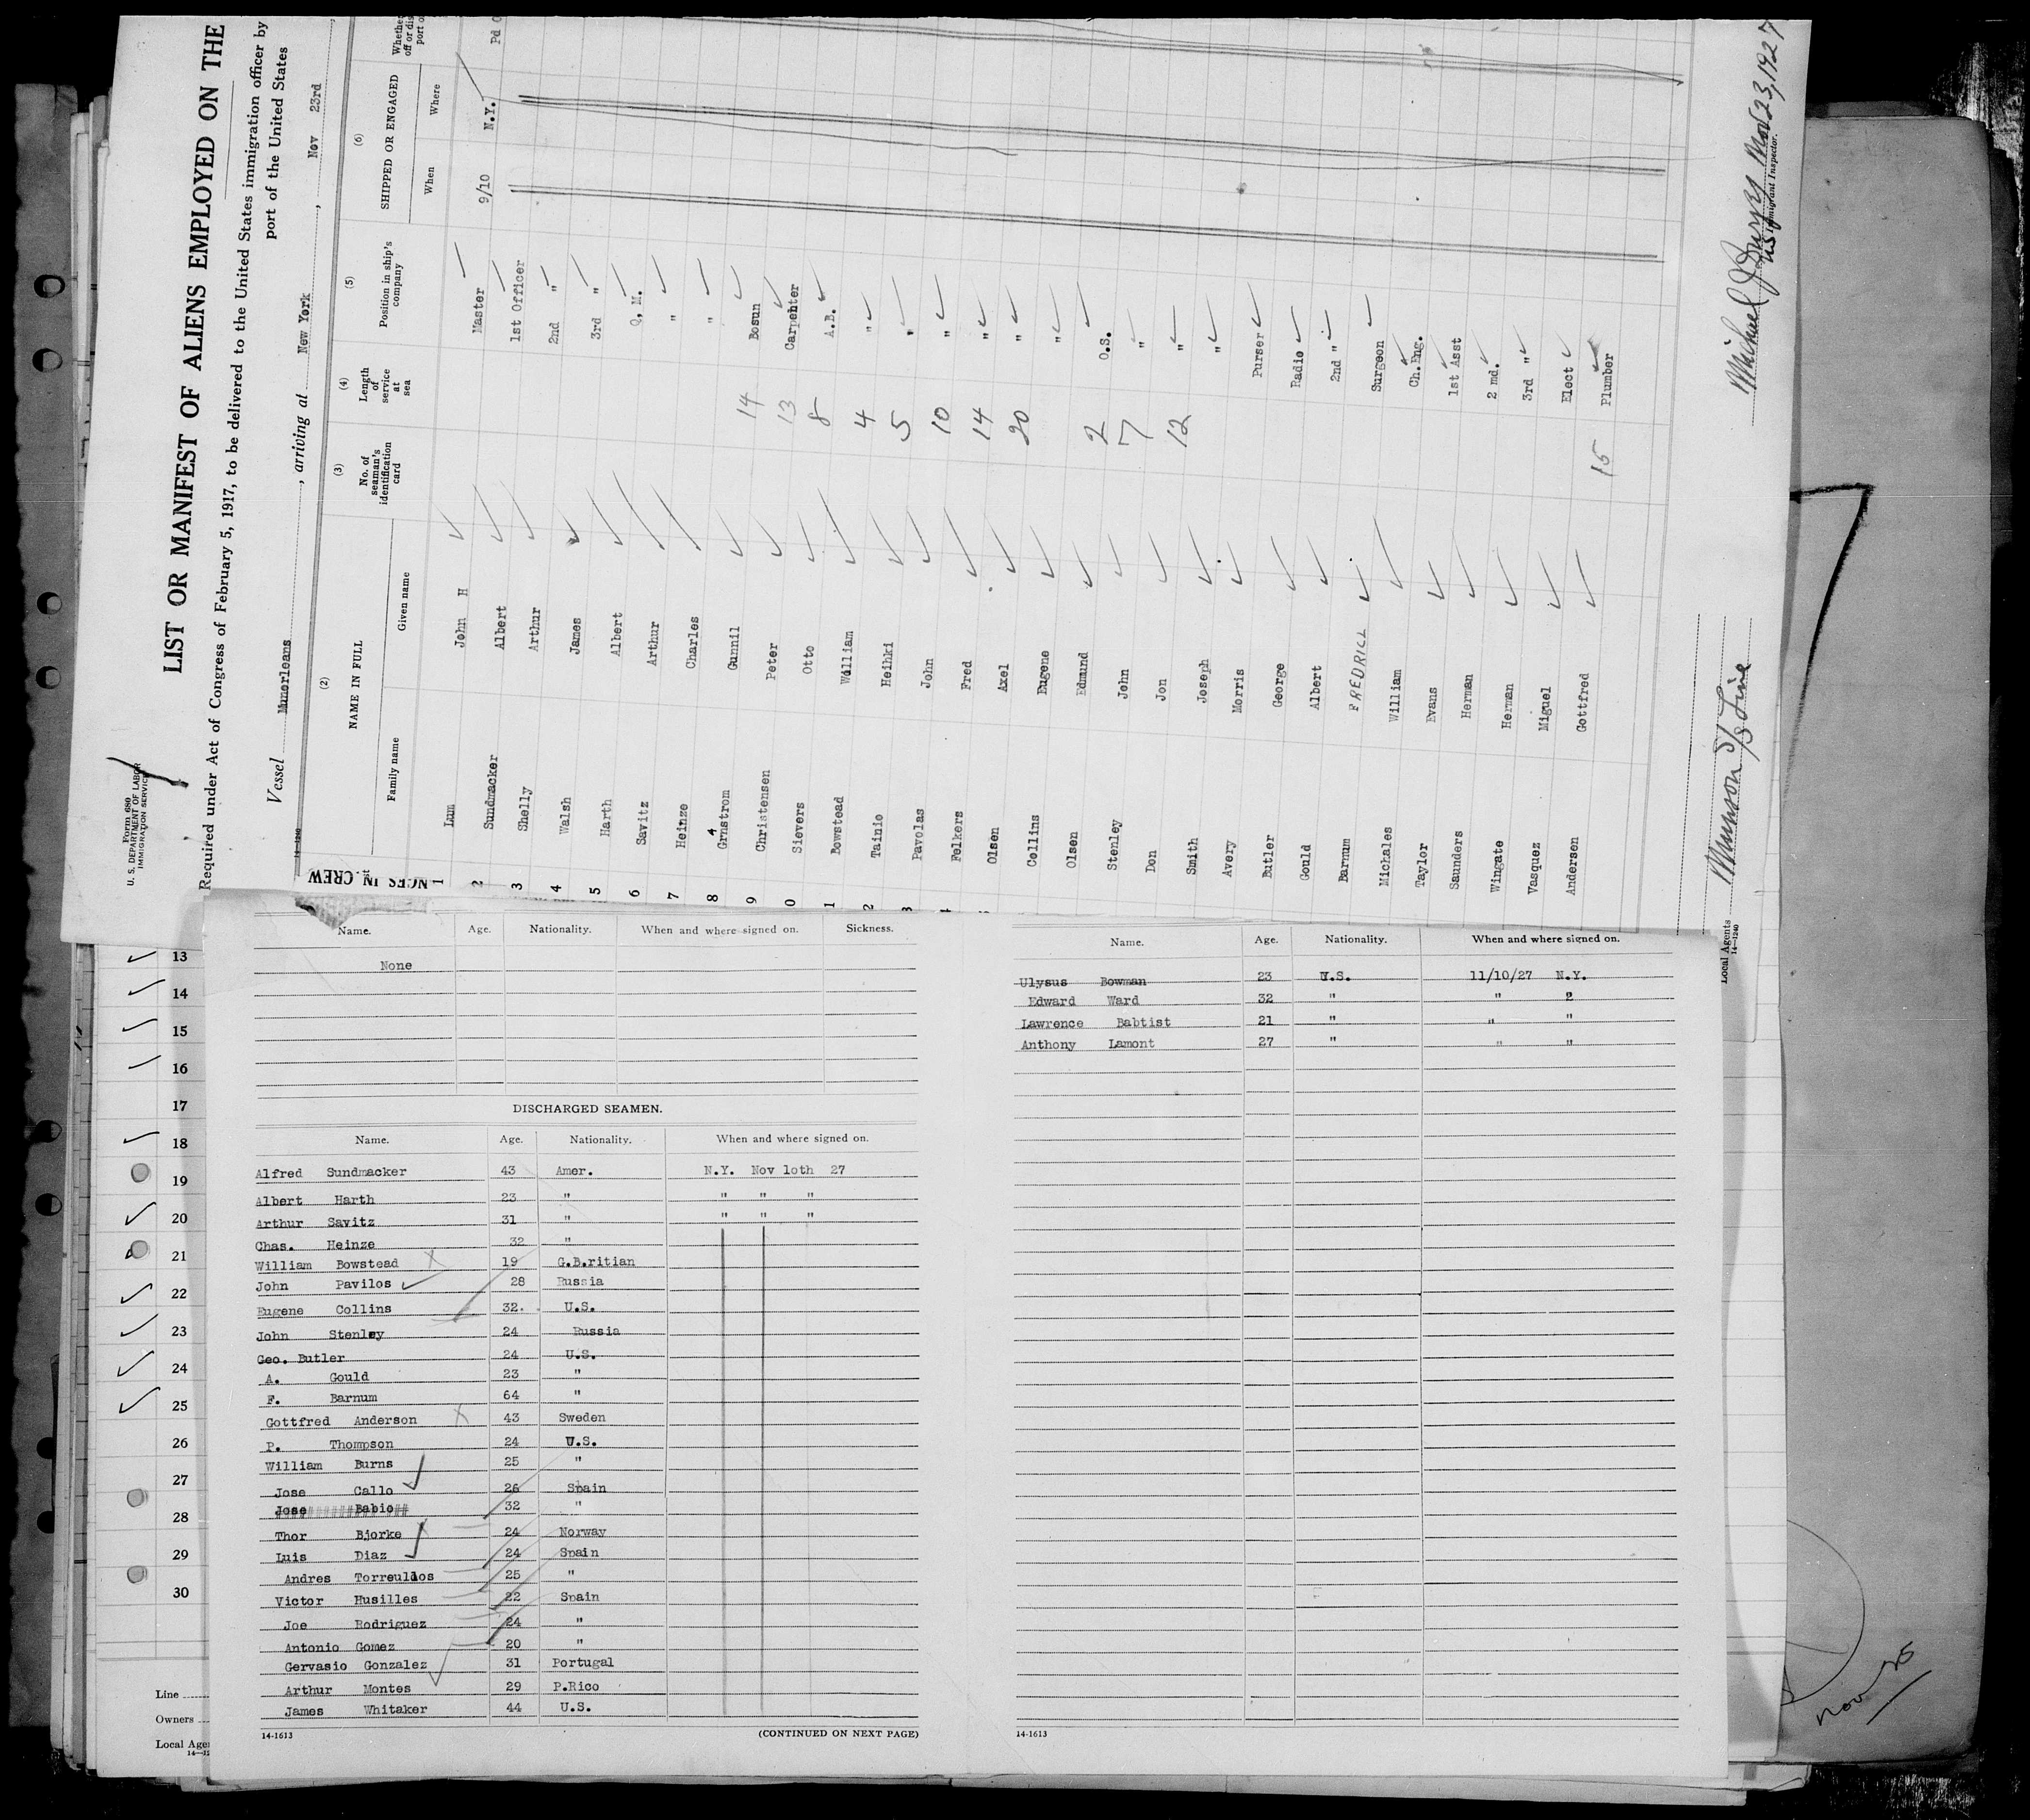 Form 680
U. S. DEPARTMENT OF LABOR
IMMIGRATION SERVICE
LIST OR MANIFEST OF ALIENS EMPLOYED ON THE
Required under Act of Congress of February 5, 1917, to be delivered to the United States immigration officer by
port of the United States
Vessel Munorleans, arriving at New York, Nov 23rd
14-1240
(2) (3) (4) (5) (6)
NAME IN FULL No. of seaman's identification card Length of service at sea Position in ship's company SHIPPED OR ENGAGED
Family name Given name When Where
NCES IN CREW
1 Lum John H Master 9/10 N.Y. Pd
2 Sundmacker Albert 1st Officer
3 Shelly Arthur 2nd "
4 Walsh James 3rd "
5 Harth Albert Q, M.
6 Savitz Arthur "
7 Heinze Charles "
8 Grnstrom Gunnil 14 Bosun
9 Christensen Peter 13 Carpenter
0 Sievers Otto 8 A.B.
1 Bowstead William 4 "
2 Tainio Heihki 5 "
3 Pavolas John 10 "
Felkers Fred 14 "
Olsen Axel 20 "
Collins Eugene "
Olsen Edmund 2 O.S.
Stenley John 7 "
Don Jon 12 "
Smith Joseph "
Avery Morris Purser
Butler George Radio
Gould Albert 2nd "
Barnum FREDRICK Surgeon
Michales William Ch. Eng.
Taylor Evans 1st Asst
Saunders Herman 2 md.
Wingate Herman 3rd "
Vasquez Miguel Elect
Andersen Gottfred 15 Plumber
Munson S/S Line
Local Agents
14-1240
Michael J
Nov 23, 1927
Immigrant Inspector.
13
14
15
16
17
18
19
20
21
22
23
24
25
26
27
28
29
30
Line
Owners
Local Age
Name. Age. Nationality. When and where signed on. Sickness.
None
DISCHARGED SEAMEN.
Name. Age. Nationality. When and where signed on.
Alfred Sundmacker 43 Amer. N.Y. Nov loth 27
Albert Harth 23 " " " "
Arthur Savitz 31 " " " "
Chas. Heinze 32 "
William Bowstead 19 G.B.ritian
John Pavilos 28 Russia
Eugene Collins 32. U.S.
John Stenley 24 Russia
Geo. Butler 24 U.S.
A. Gould 23 "
F. Barnum 64 "
Gottfred Anderson 43 Sweden
P. Thompson 24 U.S.
William Burns 25 "
Jose Callo 26 Spain
Jose Babio 32 "
Thor Bjorke 24 Norway
Luis Diaz 24 Spain
Andres Torreullos 25 "
Victor Husilles 22 Spain
Joe Rodriguez 24 "
Antonio Gomez 20 "
Gervasio Gonzalez 31 Portugal
Arthur Montes 29 P.Rico
James Whitaker 44 U.S.
14-1613 (CONTINUED ON NEXT PAGE)
Name. Age. Nationality. When and where signed on.
Ulysus Bowman 23 U.S. 11/10/27 N.Y.
Edward Ward 32 " " 2
Lawrence Babtist 21 " " "
Anthony Lamont 27 " " "
14-1613
7
nov 25